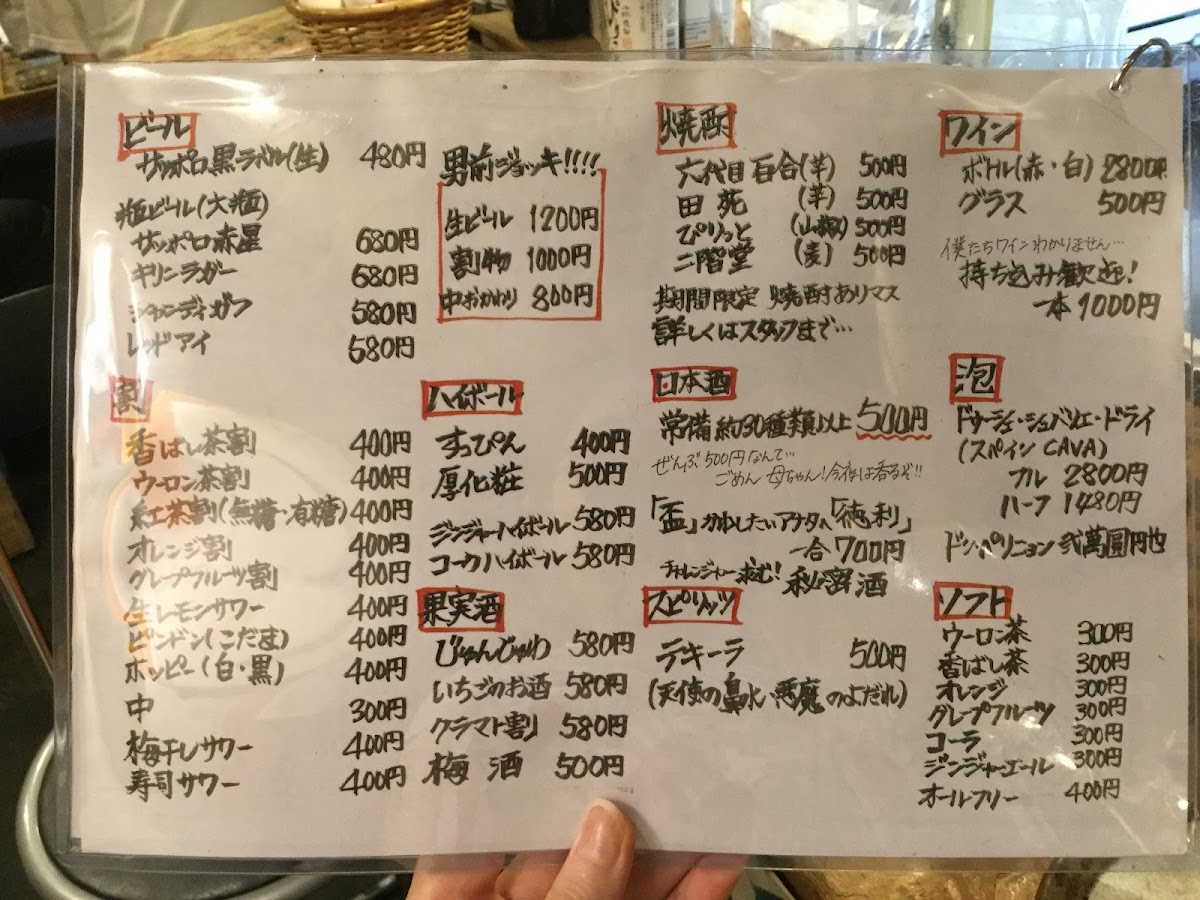 ビール
サッポロ黒ラベル(生) 480円
瓶ビール(大瓶)
サッポロ赤星 680円
キリンラガー 680円
シャンディガフ 580円
レッドアイ 580円
男前ジョッキ!!!!
生ビール 1200円
割物 1000円
中おかわり 800円
割
香ばし茶割 400円
ウーロン茶割 400円
紅茶割(無糖・有糖) 400円
オレンジ割 400円
グレープフルーツ割 400円
生レモンサワー 400円
ピンドン(こだま) 400円
ホッピー(白・黒) 400円
中 300円
梅干しサワー 400円
寿司サワー 400円
ハイボール
すっぴん 400円
厚化粧 500円
ジンジャーハイボール 580円
コークハイボール 580円
果実酒
じゅんじゅわ 580円
いちごのお酒 580円
クラマト割 580円
梅酒 500円
焼酎
六代目百合(芋) 500円
田苑 (芋) 500円
ぴりっと (山椒) 500円
二階堂 (麦) 500円
期間限定 焼酎ありマス
詳しくはスタッフまで…
日本酒
常備約30種類以上 500円
ぜんぶ500円なんて…
ごめん 母ちゃん!今夜は呑るぞ!!
「盃」かわしたいアナタへ「徳利」
一合700円
チャレンジャー求む! 秘密酒
スピリッツ
テキーラ 500円
(天使の鼻水・悪魔のよだれ)
ワイン
ボトル(赤・白) 2800円
グラス 500円
僕たちワインわかりません…
持ち込み歓迎!
一本1000円
泡
ドゥーシェ・シュバリエ・ドライ
(スペインCAVA)
フル 2800円
ハーフ 1480円
ドン・ペリニョン 弐萬圓円也
ソフト
ウーロン茶 300円
香ばし茶 300円
オレンジ 300円
グレープフルーツ 300円
コーラ 300円
ジンジャーエール 300円
オールフリー 400円